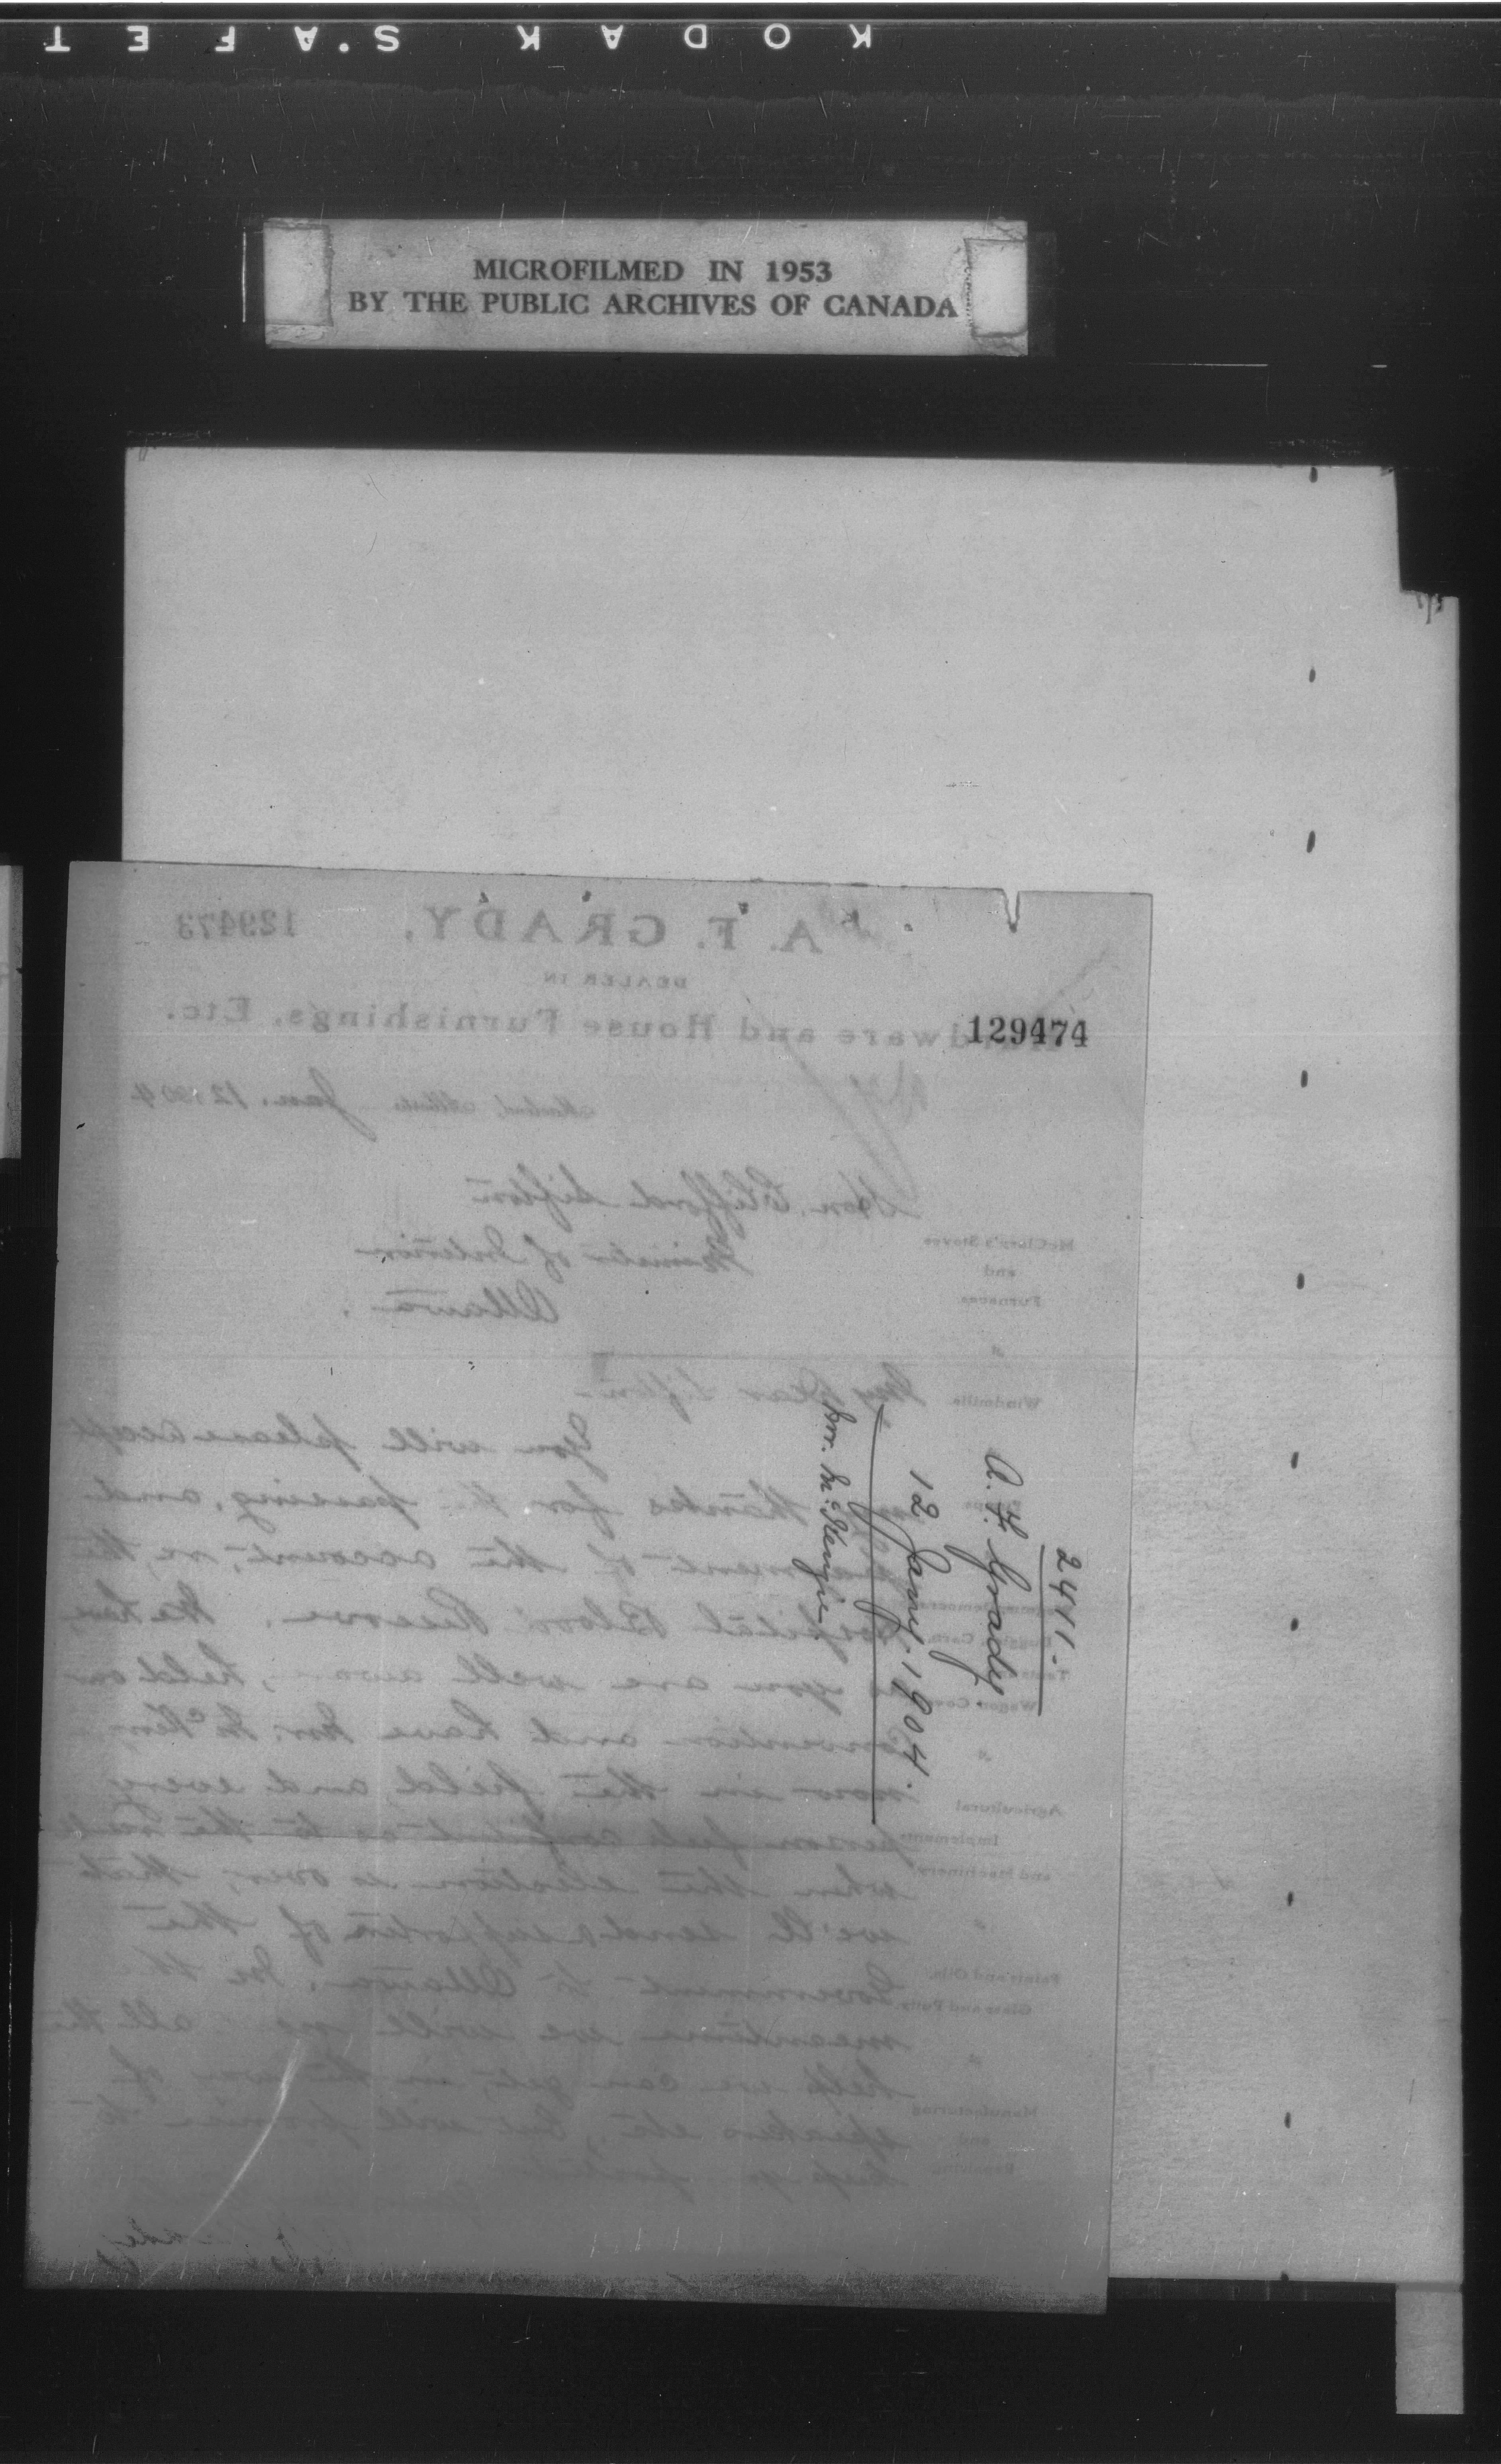 KODAK S'AFET
MICROFILMED IN 1953
BY THE PUBLIC ARCHIVES OF CANADA
129473
A. F. GRADY,
DEALER IN
Hardware and House Furnishings, Etc.
129474
Jan. 12 1904
Hon. Clifford Sifton
Minister of Interior
Ottawa.
McClary's Stoves
and
Furnaces
Windmills
My Dear Sifton
You will please accept
my thanks for the passing, and
payment of the account, re, the
Hospital Blood Reserve. We have,
as you are well aware, held our
Convention and have Mr. McKen
now in the field and every
person feels confident as to the
when the election is over, that
we'll send a supporter of the
Government to Ottawa. In the
meantime we will all the
help we can get, in the way of
speakers etc, but will promise to
keep
Wagon Covers
Agricultural
Implements
and Machinery
Paints and Oils,
Glass and Putty
Manufacturing
and
Repairing
2411.
A. F. Grady
12 Jany. 1904.